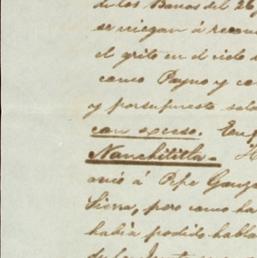 de los Banos del 26
se niegan á recono
el grito en el cielo
como Payno y co
y por supuesto
con exceso. Eug
Nanchititla. H
avisé á Pepe Gonza
Sierra, pero como ha
había podido habla